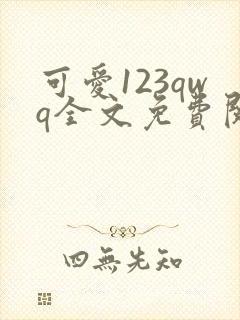 可愛123qw
q全文免費閱
四無先知